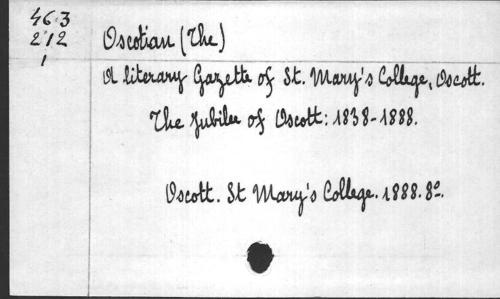 463
212
1
Oscotian (The)
A literary Gazette of St. Mary's College, Oscott.
The Jubilee of Oscott: 1838-1888.
Oscott. St Mary's College. 1888. 8º.